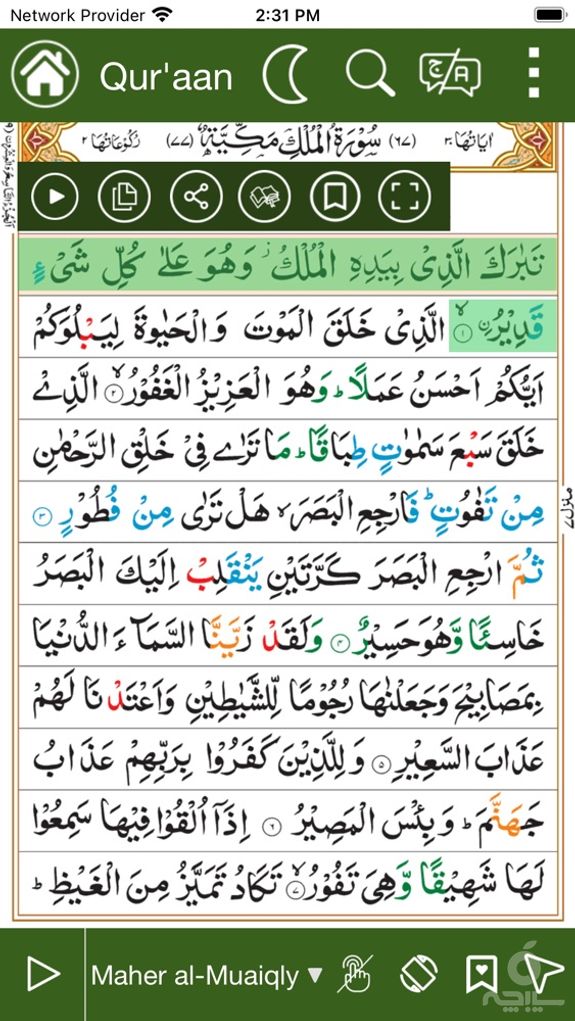 Network Provider 2:31 PM
Qur'aan ج/A
اٰيَاتُهَا ٣٠ (٦٧) سُوْرَةُ الْمُلْكِ مَكِّيَّةٌ (٧٧) رُكُوْعَاتُهَا ٢
تَبٰرَكَ الَّذِىْ بِيَدِهِ الْمُلْكُ ۡ وَهُوَ عَلٰى كُلِّ شَىْءٍ
قَدِيْرُۨ ۙ ١ الَّذِىْ خَلَقَ الْمَوْتَ وَالْحَيٰوةَ لِيَبْلُوَكُمْ
اَيُّكُمْ اَحْسَنُ عَمَلًا ؕ وَهُوَ الْعَزِيْزُ الْغَفُوْرُ ۙ ٢ الَّذِىْ
خَلَقَ سَبْعَ سَمٰوٰتٍ طِبَاقًا ؕ مَا تَرٰى فِىْ خَلْقِ الرَّحْمٰنِ
مِنْ تَفٰوُتٍ ؕ فَارْجِعِ الْبَصَرَ ۙ هَلْ تَرٰى مِنْ فُطُوْرٍ ٣
ثُمَّ ارْجِعِ الْبَصَرَ كَرَّتَيْنِ يَنْقَلِبْ اِلَيْكَ الْبَصَرُ
خَاسِئًا وَّهُوَ حَسِيْرٌ ٤ وَلَقَدْ زَيَّنَّا السَّمَآءَ الدُّنْيَا
بِمَصَابِيْحَ وَجَعَلْنٰهَا رُجُوْمًا لِّلشَّيٰطِيْنِ وَاَعْتَدْنَا لَهُمْ
عَذَابَ السَّعِيْرِ ٥ وَلِلَّذِيْنَ كَفَرُوْا بِرَبِّهِمْ عَذَابُ
جَهَنَّمَ ؕ وَبِئْسَ الْمَصِيْرُ ٦ اِذَاۤ اُلْقُوْا فِيْهَا سَمِعُوْا
لَهَا شَهِيْقًا وَّهِىَ تَفُوْرُ ۙ ٧ تَكَادُ تَمَيَّزُ مِنَ الْغَيْظِ ؕ
منزل ٧
Maher al-Muaiqly
سیبچه